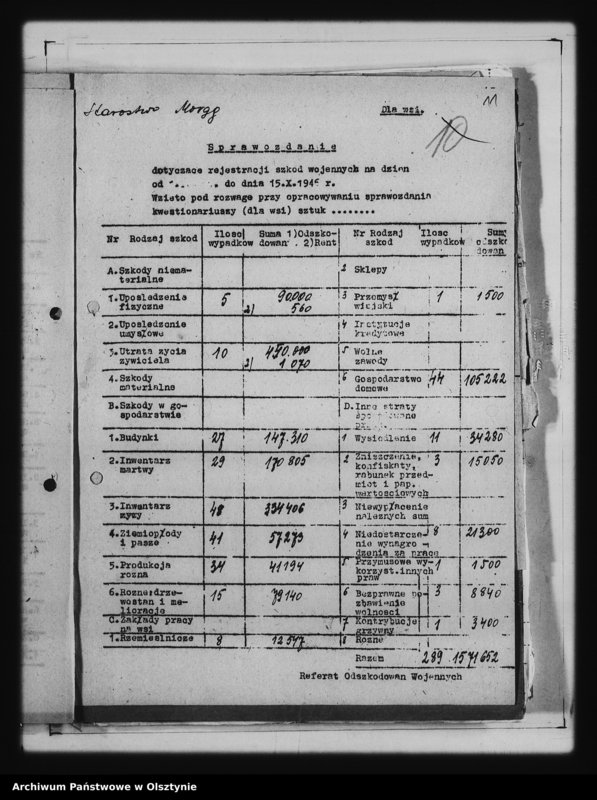 Starostwo Morąg
Dla wsi.
11
10
Sprawozdanie
dotyczące rejestracji szkod wojennych na dzien
od do dnia 15.X.1946 r.
Wzieto pod rozwage przy opracowywaniu sprawozdania
kwestionariuszy (dla wsi) sztuk ........
Nr Rodzaj szkod Ilosc wypadkow Suma 1)Odszkodowan . 2)Rent Nr Rodzaj szkod Ilosc wypadkow
A.Szkody niematerialne
2 Sklepy
1.Uposledzenia fizyczne 5 90.000 2) 560
3 Przemysł wiejski 1 1500
2.Uposledzenie umysłowe
4 Instytucje kredytowe
3.Utrata zycia zywiciela 10 450.000 2) 1070
5 Wolne zawody
4.Szkody materialne
6 Gospodarstwo domowe 44 105222
B.Szkody w gospodarstwie
D.Inne straty
1.Budynki 27 147.310
1 Wysiedlenie 11 34280
2.Inwentarz martwy 29 170805
2 Zniszczenie, konfiskaty, rabunek przedmiot i pap. wartosciowych 3 15050
3.Inwentarz zywy 48 334406
3 Niewypłacenie naleznych sum
4.Ziemiopłody i pasze 41 57273
4 Niedostarczenie wynagrodzenia za prace 8 21300
5.Produkcja rozna 34 41194
5 Przymusowe wykorzyst.innych praw 1 1500
6.Rozne:drzewostan i melioracje 15 79140
6 Bezprawne pozbawienie wolnosci 3 8840
C.Zakłady pracy na wsi
7 Kontrybucje grzywny 1 3400
1.Rzemieslnicze 8 12547
8 Rozne
Razem 289 1571652
Referat Odszkodowan Wojennych
Archiwum Państwowe w Olsztynie